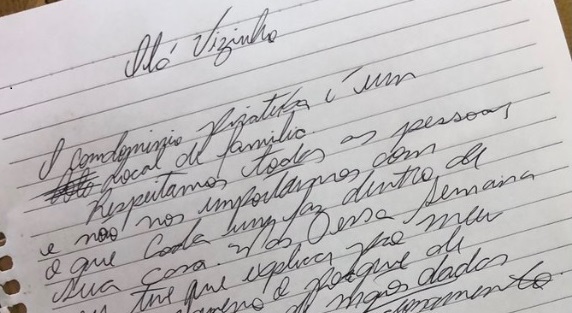 Alô Vizinho
O condominio Piratika é um
local de família.
Respeitamos todas as pessoas
e nao nos importarmos com
o que cada um faz dentro de
sua casa. Mas essa semana
tive que explicar pro meu
o porque de
mãos dadas